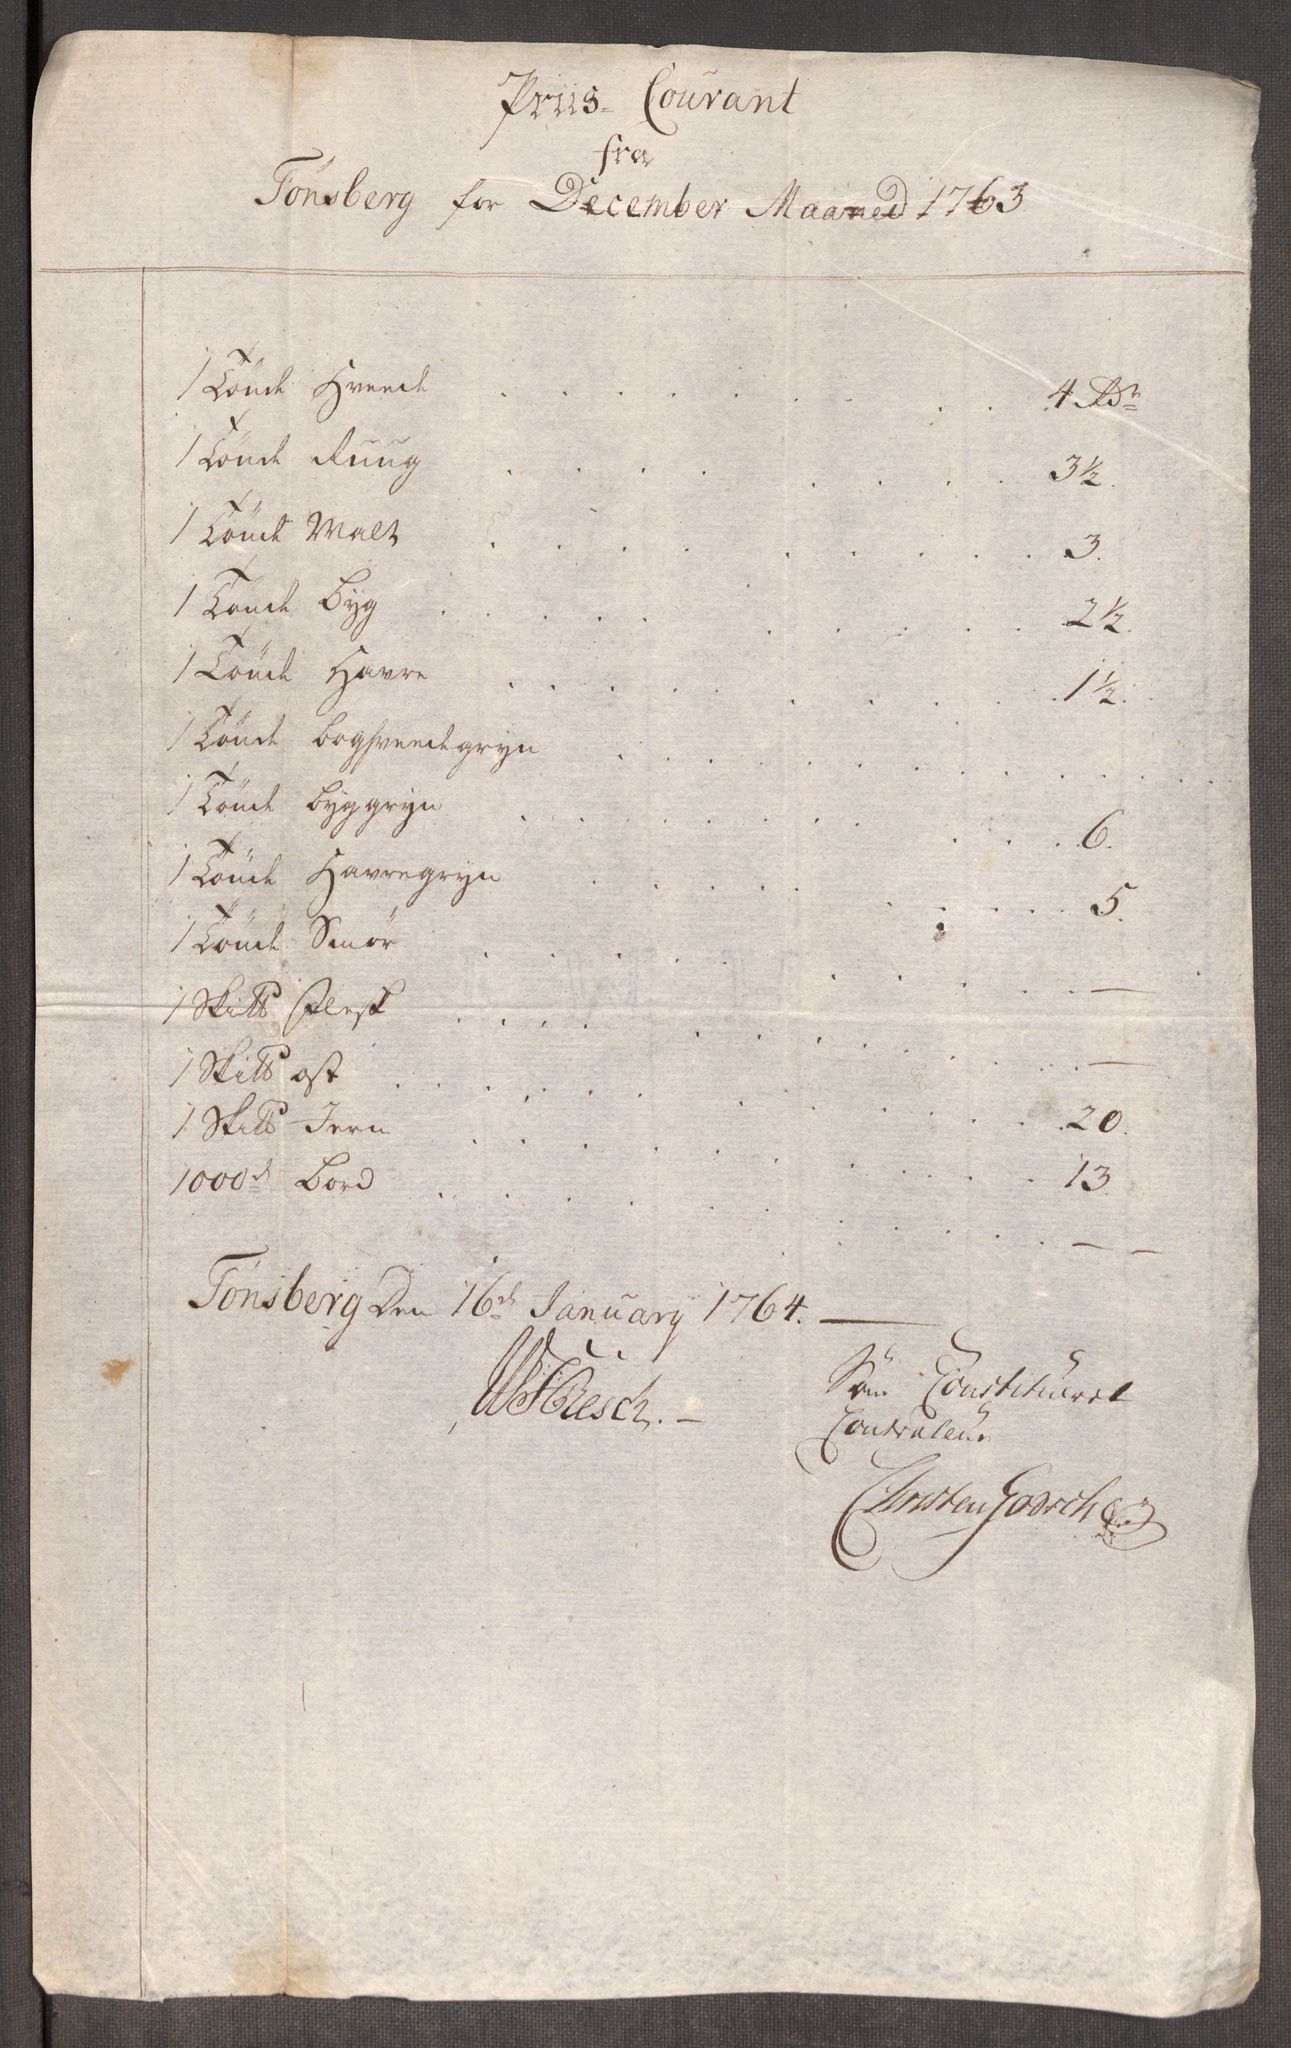 Priis- Courant
fra
Tönsberg for December Maaned 1763
1 Tönde Hveede . . . . . . . . 4 Rdr
1 Tönde Ruug . . . . . . . . 3½.
1 Tönde Malt . . . . . . . . 3.
1 Tönde Byg . . . . . . . . 2½.
1 Tönde Havre . . . . . . . . 1½.
1 Tönde Boghveedegryn . . . . . . . .
1 Tönde Byggryn . . . . . . . . 6.
1 Tönde Havregryn . . . . . . . . 5.
1 Tönde Smör . . . . . . . . —
1 Skitt Flesk . . . . . . . . —
1 Skitt ost . . . . . . . . 20.
1 Skitt Jern . . . . . . . . 13.
1000d Bord . . . . . . . . — —
Tönsberg Den 16d January 1764. —
Som Constitueret
Controleur
Christen